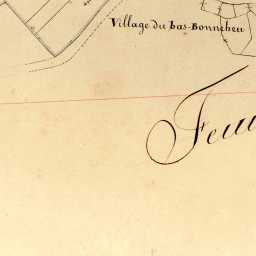 Village du bas-Bonneheu
Feui